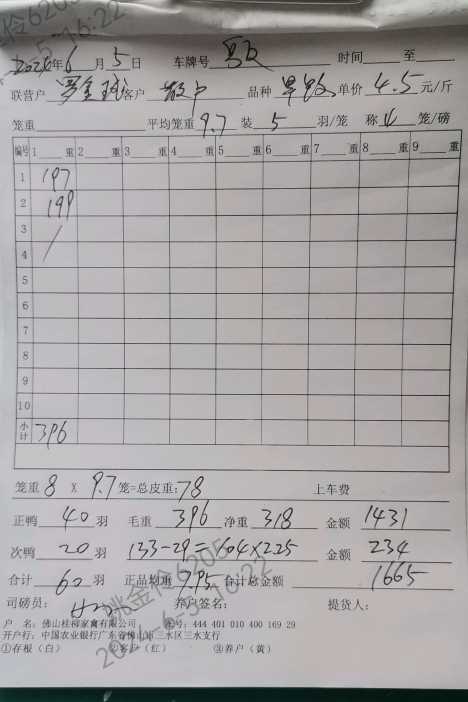 2024年6月5日 车牌号 时间 至
联营户 客户 散户 品种 单价 4.5 元/斤
笼重 平均笼重 9.7 装 5 羽/笼 称 4 笼/磅
编号 1 重 2 重 3 重 4 重 5 重 6 重 7 重 8 重 9 重
1 197
2 199
3
4
5
6
7
8
9
10
小计 396
笼重 8 X 9.7 笼=总皮重: 78 上车费
正鸭 40 羽 毛重 396 净重 318 金额 1431
次鸭 20 羽 133-29=104×2.25 金额 234
合计 60 羽 正品均重 7.95 合计总金额 1665
司磅员: 养户签名: 提货人:
户 名: 佛山桂柳家禽有限公司 账号: 444 401 010 400 169 29
开户行: 中国农业银行广东省佛山市三水区三水支行
①存根(白) ②客户(红) ③养户(黄)
姚金伶6205
2024-6-5 16:22